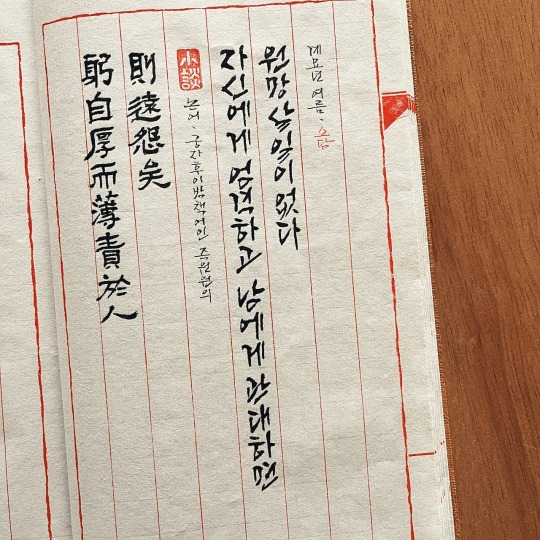 躬自厚而薄責於人
則遠怨矣
小談
논어 · 궁자후이박책어인 즉원원의
자신에게 엄격하고 남에게 관대하면
원망 살 일이 없다
계묘년 여름 · 소담